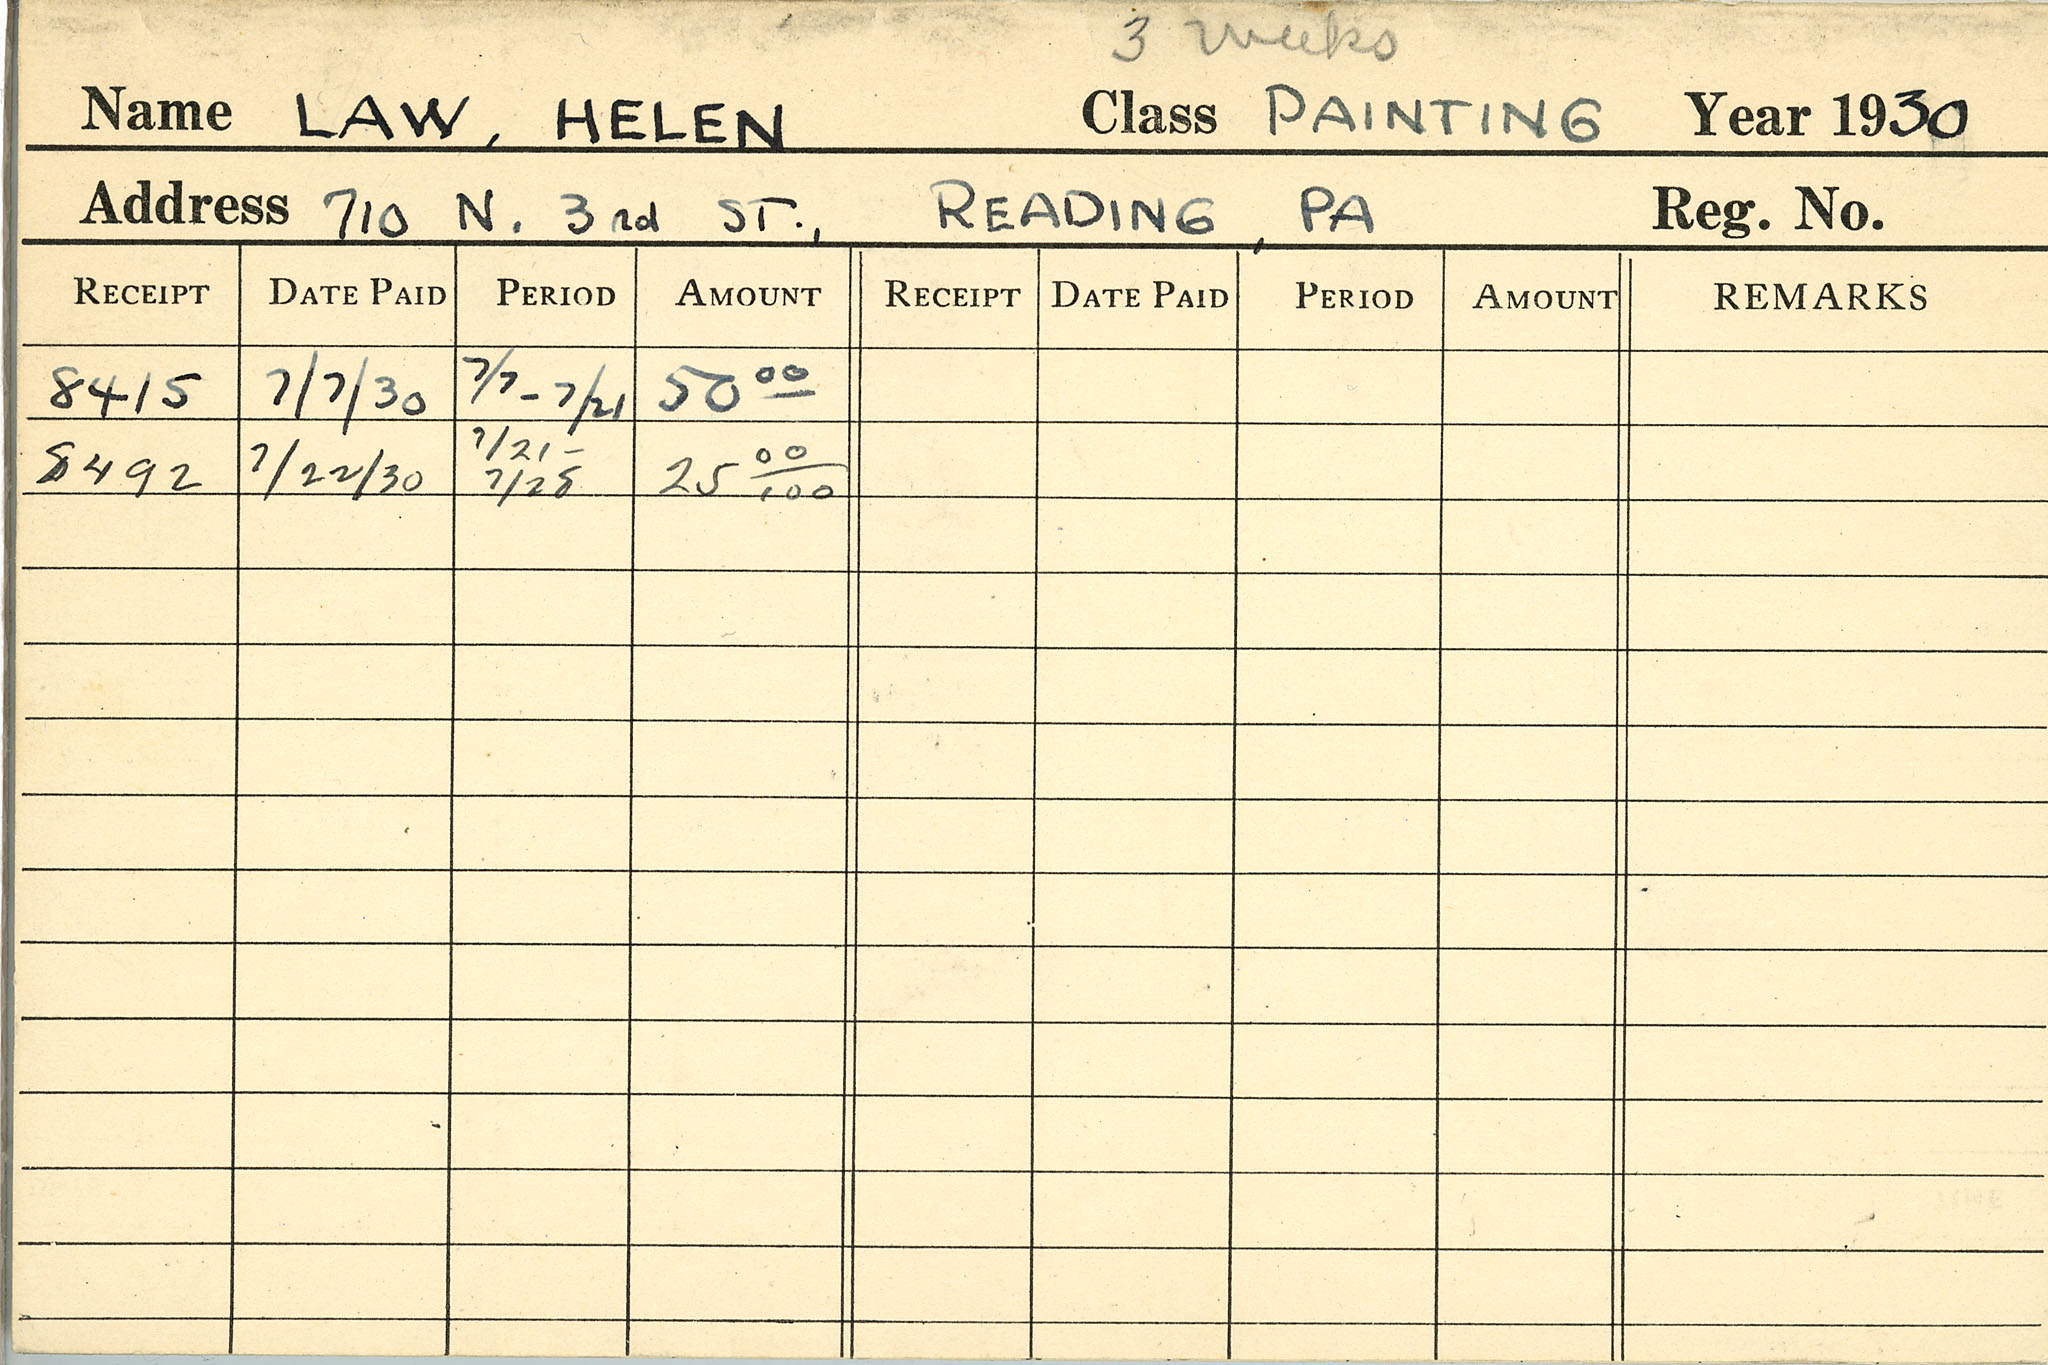 3 weeks
Name LAW, HELEN Class PAINTING Year 1930
Address 710 N. 3rd ST., READING, PA Reg. No.
RECEIPT DATE PAID PERIOD AMOUNT RECEIPT DATE PAID PERIOD AMOUNT REMARKS
8415 7/7/30 7/7-7/21 50 00
8492 7/22/30 7/21-7/28 25 00/100